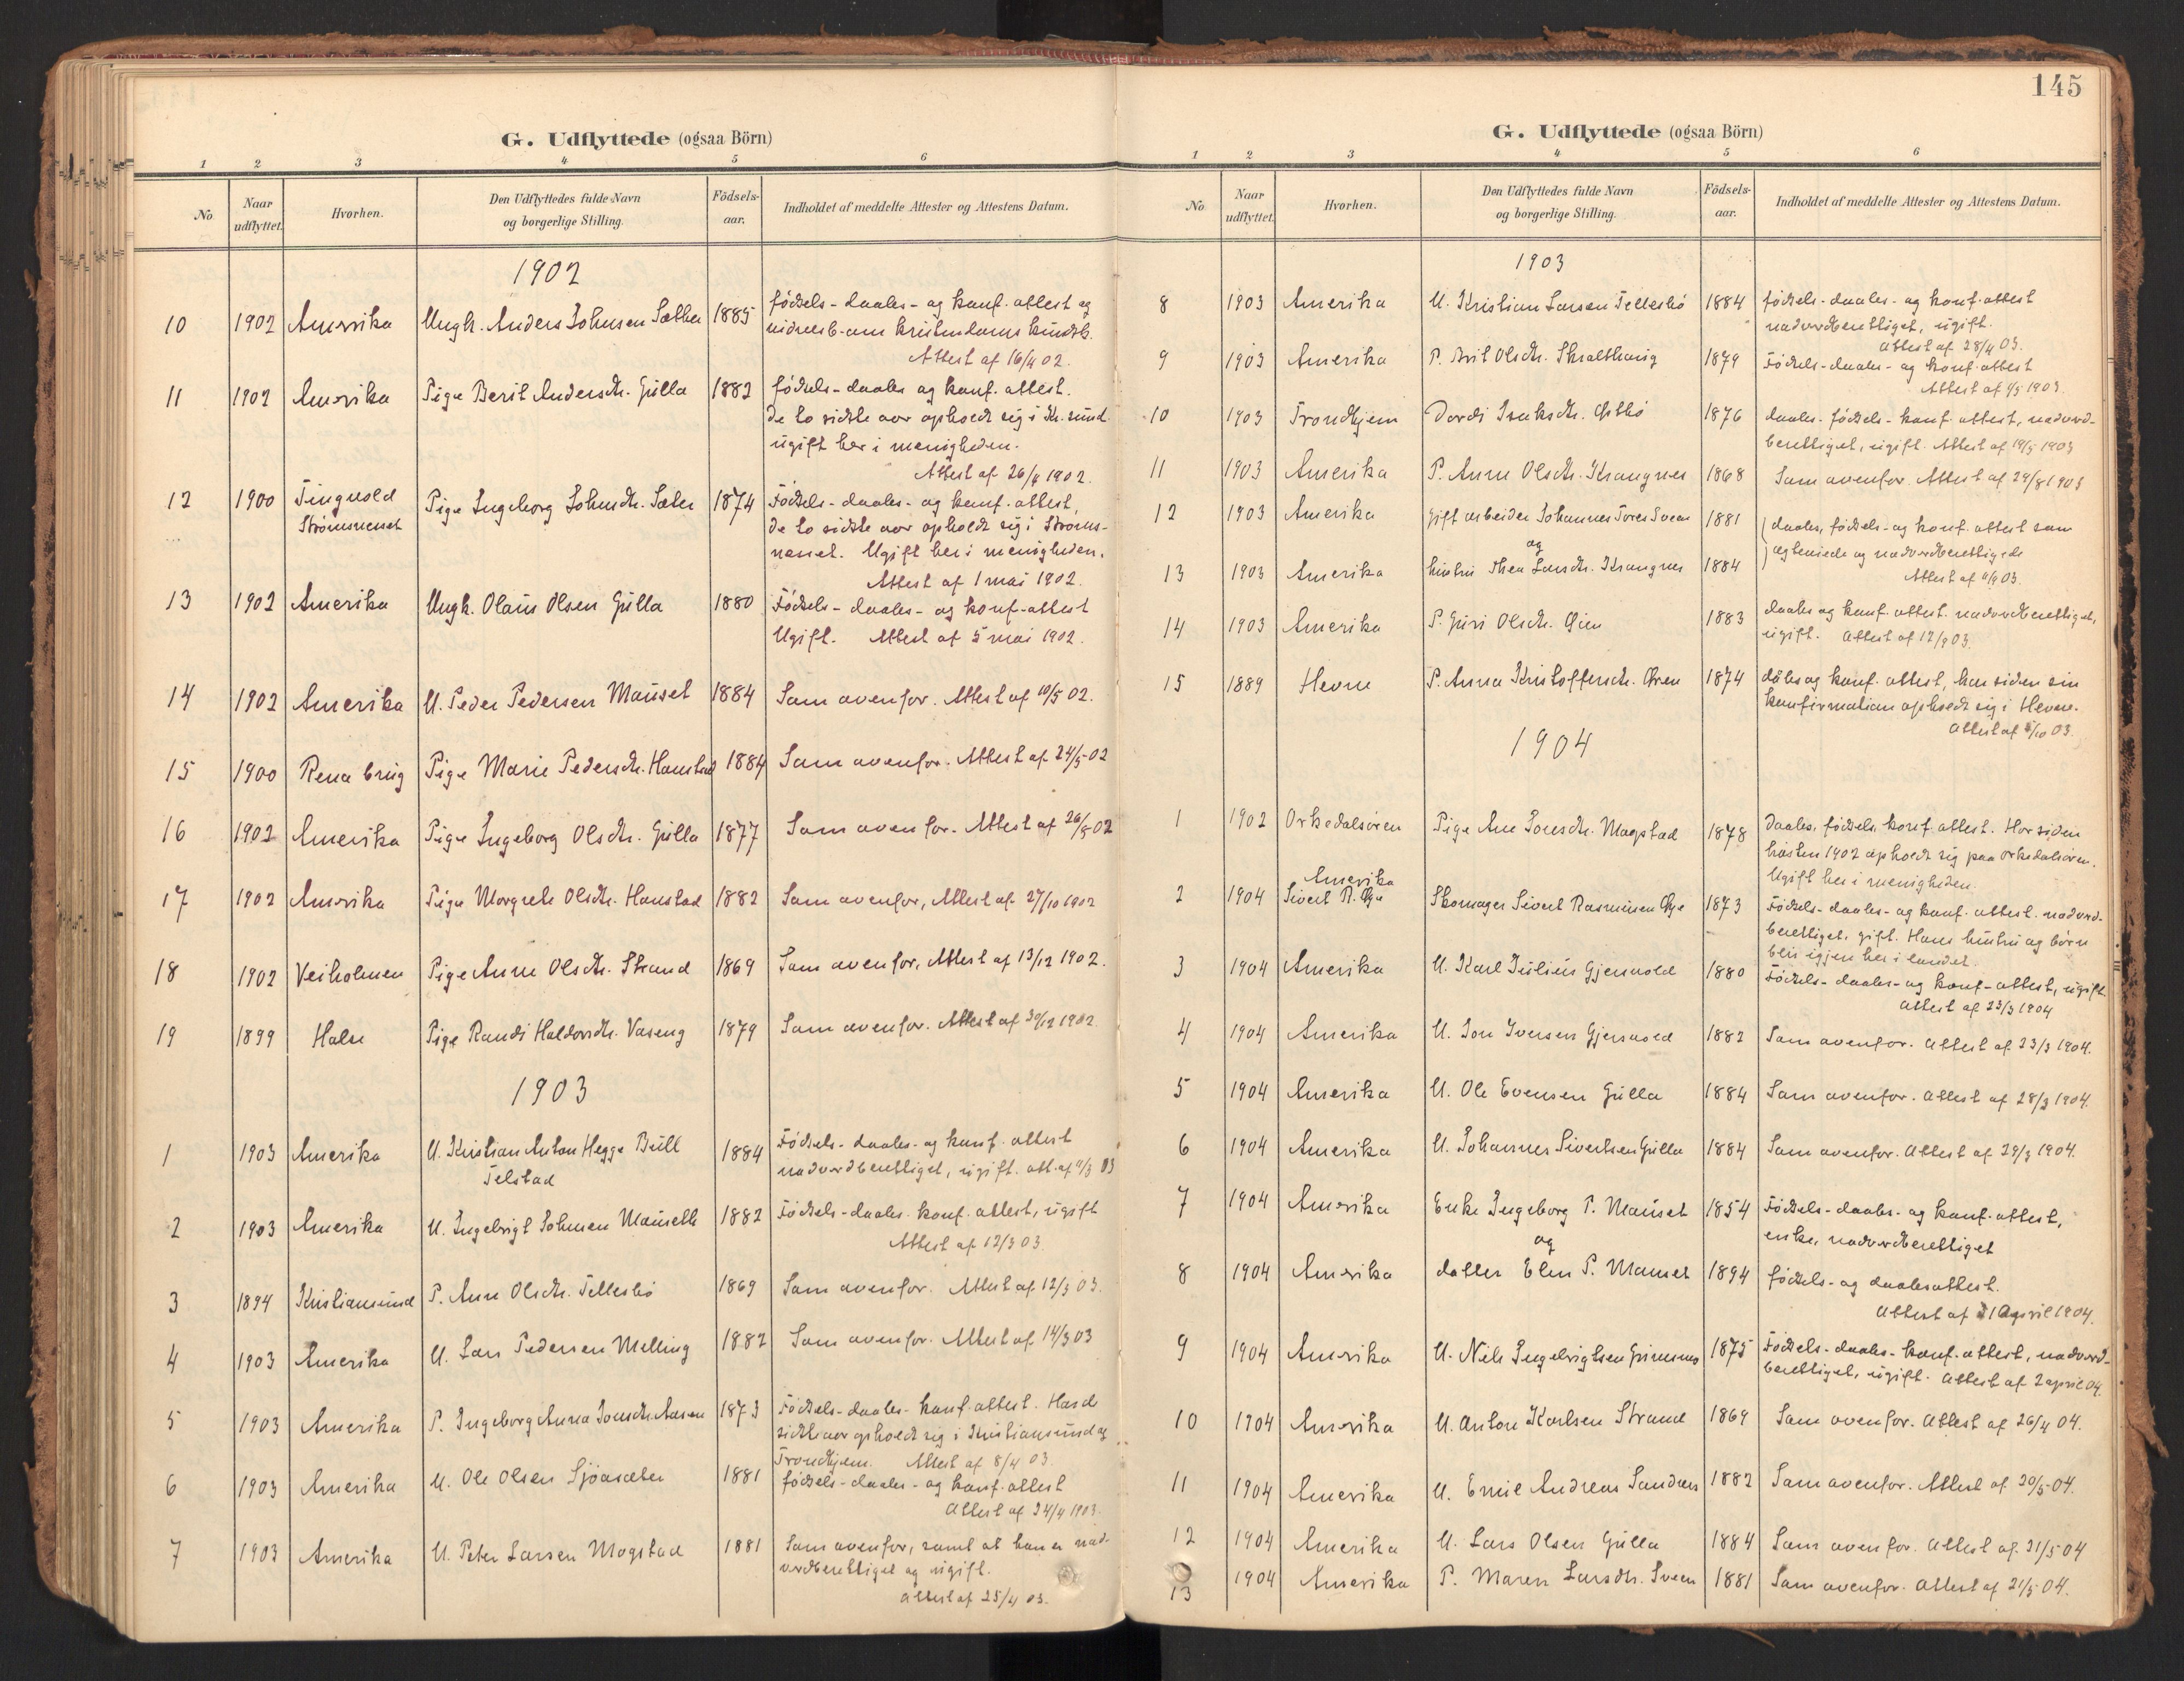 G. Udflyttede (ogsaa Börn)
1 2 3 4 5 6
No
Naar udflyttet.
Hvorhen.
Den Udflyttedes fulde Navn og borgerlige Stilling.
Födsels-aar.
Indholdet af meddelte Attester og Attestens Datum.
1902
10 1902 Amerika Ungk. Anders Johnsen Sæther 1885 födsels- daabs- og konf. attest og
vidnesb. om kristendoms kundsk.
Attest af 16/4 02.
11 1902 Amerika Pige Berit Andersdtr. Gulla 1882 födsels- daabs og konf. attest.
de to sidste aar opholdt sig i Kr.sund
ugift her i menigheden.
Attest af 26/4 1902.
12 1900 Tingvold Pige Ingeborg Johnsdtr. Sæter 1874 Födsels- daabs- og konf. attest,
Strømsneset de to sidste aar opholdt sig i Stroms-
neset. Ugift her i menigheden.
Attest af 1 mai 1902.
13 1902 Amerika Ungk. Olaus Olsen Gulla 1880 Födsels- daabs- og konf- attest
Ugift. Attest af 5 mai 1902.
14 1902 Amerika U. Peder Pedersen Mauset 1884 Som ovenfor. Attest af 10/5 02.
15 1900 Rena brug Pige Marie Pedersdtr. Hanstad 1884 Som ovenfor. Attest af 24/5 02
16 1902 Amerika Pige Ingeborg Olsdtr. Gulla 1877 Som ovenfor. Attest af 26/8 02
17 1902 Amerika Pige Margrete Olsdtr. Hanstad 1882 Som ovenfor, Attest af 27/10 1902
18 1902 Veiholmen Pige Anne Olsdtr. Strand 1869 Som ovenfor, Attest af 13/12 1902.
19 1899 Halse Pige Randi Haldorsdtr. Vaseng 1879 Som ovenfor. Attest af 30/12 1902.
1903
1 1903 Amerika U. Kristian Anton Hegge Bull 1884 Födsels- daabs- og konf. attest
Telstad nadverdberettiget, ugift. att. af 11/3 03
2 1903 Amerika U. Ingebrigt Johnsen Mauseth 1882 Födsels- daabs. konf. attest, ugift
Attest af 12/3 03.
3 1894 Kristiansund P. Ane Olsdtr. Tellesbö 1869 Som ovenfor. Attest af 12/3 03.
4 1903 Amerika U. Lars Pedersen Melling 1882 Som ovenfor. Attest af 14/3 03
5 1903 Amerika P. Ingeborg Anna Jonsdtr. Aasen 1873 Födsels- daabs- konf. attest. Har d
sidste aar opholdt sig i Kristiansund og
Trondhjem. Attest af 8/4 03.
6 1903 Amerika U. Ole Olsen Sjöasæter 1881 födsels- daabs- og konf. attest
Attest af 24/4 1903.
7 1903 Amerika U. Peter Larsen Mogstad 1881 Som ovenfor, samt at han er nad-
verdberettiget og ugift.
Attest af 25/4 03.
145
G. Udflyttede (ogsaa Börn)
1 2 3 4 5 6
No
Naar udflyttet.
Hvorhen.
Den Udflyttedes fulde Navn og borgerlige Stilling.
Födsels-aar.
Indholdet af meddelte Attester og Attestens Datum.
1903
8 1903 Amerika U. Kristian Larsen Tellesbö 1884 födsels- daabs- og konf. attest
nadverdberettiget, ugift.
Attest af 28/4 03.
9 1903 Amerika P. Brit Olsdtr. 1879 Födsels- daabs- og konf. attest
Attest af 4/5 1903.
10 1903 Trondhjem Dordi Isaksdtr. Østbö 1876 daabs- födsels- konf. attest, nadverd-
berettiget, ugift. Attest af 19/5 1903
11 1903 Amerika P. Anne Olsdtr. Krangnes 1868 Som ovenfor. Attest af 29/8 1903
12 1903 Amerika Gift arbeider Johannes Toresen Sveen 1881 daabs, födsels- og konf. attest som
og
13 1903 Amerika hustru Thea Larsdtr. Krangnes 1884 ægteviede og nadverdberettigede
Attest af 11/9 03.
14 1903 Amerika P. Guri Olsdtr. Øien 1883 daabs og konf. attest. nadverdberettiget,
ugift. Attest af 12/9 03.
15 1889 Hevne P. Anna Kristoffersdtr. Øren 1874 döbs og konf. attest, har siden sin
konfirmation opholdt sig i Hevne.
Attest af 5/10 03.
1904
1 1902 Orkedalsören Pige Ane Jonsdtr. Mogstad 1878 Daabs, födsels, konf. attest. Har siden
hösten 1902 opholdt sig paa Orkedalsören.
Ugift her i menigheden.
Amerika
2 1904 Sivert R. Øye Skomager Sivert Rasmussen Øye 1873 Födsels- daabs- og konf. attest. nadverd-
berettiget, gift. Hans hustru og börn
blir igjen her i landet.
3 1904 Amerika U. Karl Julius Gjersvold 1880 Födsels- daabs- og konf- attest, ugift.
Attest af 23/3 1904
4 1904 Amerika U. Jon Iversen Gjersvold 1882 Som ovenfor. Attest af 23/3 1904.
5 1904 Amerika U. Ole Evensen Gulla 1884 Som ovenfor. Attest af 28/3 1904.
6 1904 Amerika U. Johannes Sivertsen Gulla 1884 Som ovenfor. Attest af 29/3 1904.
7 1904 Amerika Enke Ingeborg P. Mauset 1854 Födsels- daabs- og konf. attest,
og enke, nadverdberettiget
8 1904 Amerika datter Elen P. Mauset 1894 födsels- og daabsattest.
Attest af 1 April 1904.
9 1904 Amerika U. Nils Ingebrigtsen Grimsmo 1875 Födsels- daabs- konf. attest, nadverd-
berettiget, ugift. Attest af 2 april 04.
10 1904 Amerika U. Anton Karlsen Strand 1869 Som ovenfor. Attest af 26/4 04.
11 1904 Amerika U. Emil Andreas Sandnes 1882 Som ovenfor. Attest af 20/5 04.
12 1904 Amerika U. Lars Olsen Gulla 1884 Som ovenfor. Attest af 21/5 04
13 1904 Amerika P. Maren Larsdtr. Sveen 1881 Som ovenfor. Attest af 21/5 04.